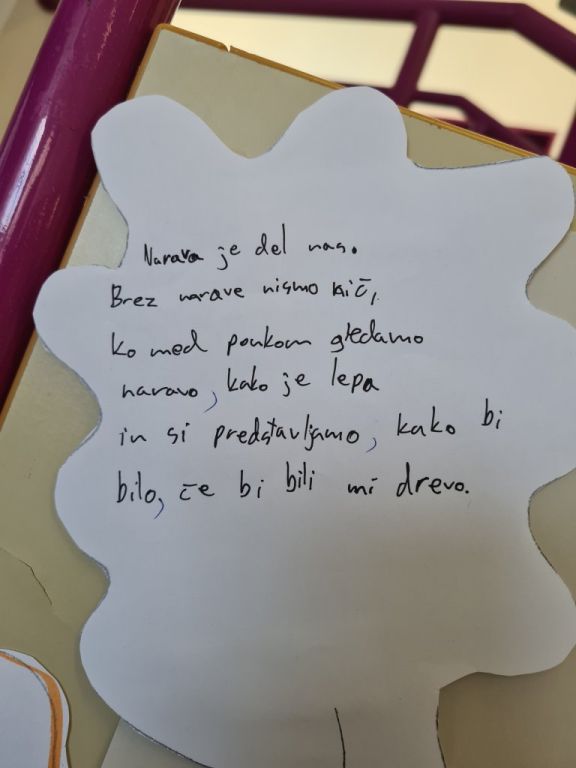 Narava je del nas.
Brez narave nismo nič,
ko med poukom gledamo
naravo, kako je lepa
in si predstavljamo, kako bi
bilo, če bi bili mi drevo.